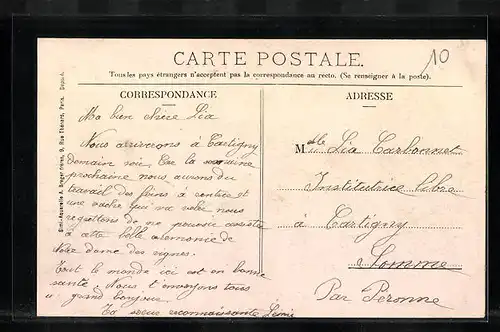 10
CARTE POSTALE.
Tous les pays étrangers n'acceptent pas la correspondance au recto. (Se renseigner à la poste).
CORRESPONDANCE
Ma bien chère Lia
Nous arriverons à Cartigny
demain soir. Car la semaine
prochaine nous aurons du
travail des foins à rentrer et
une vache qui va vêler nous
regrettons de ne pouvoir assister
à cette belle cérémonie de
Notre dame des vignes.
Tout le monde ici est en bonne
santé. Nous t'envoyons tous
un grand bonjour.
Ta sœur reconnaissante
ADRESSE
Melle Lia Carbonnet
Institutrice libre
à Cartigny
Somme
Par Péronne
Simi-Aquarelle A. Breger frères, 9, Rue Thénard, Paris. Déposé.